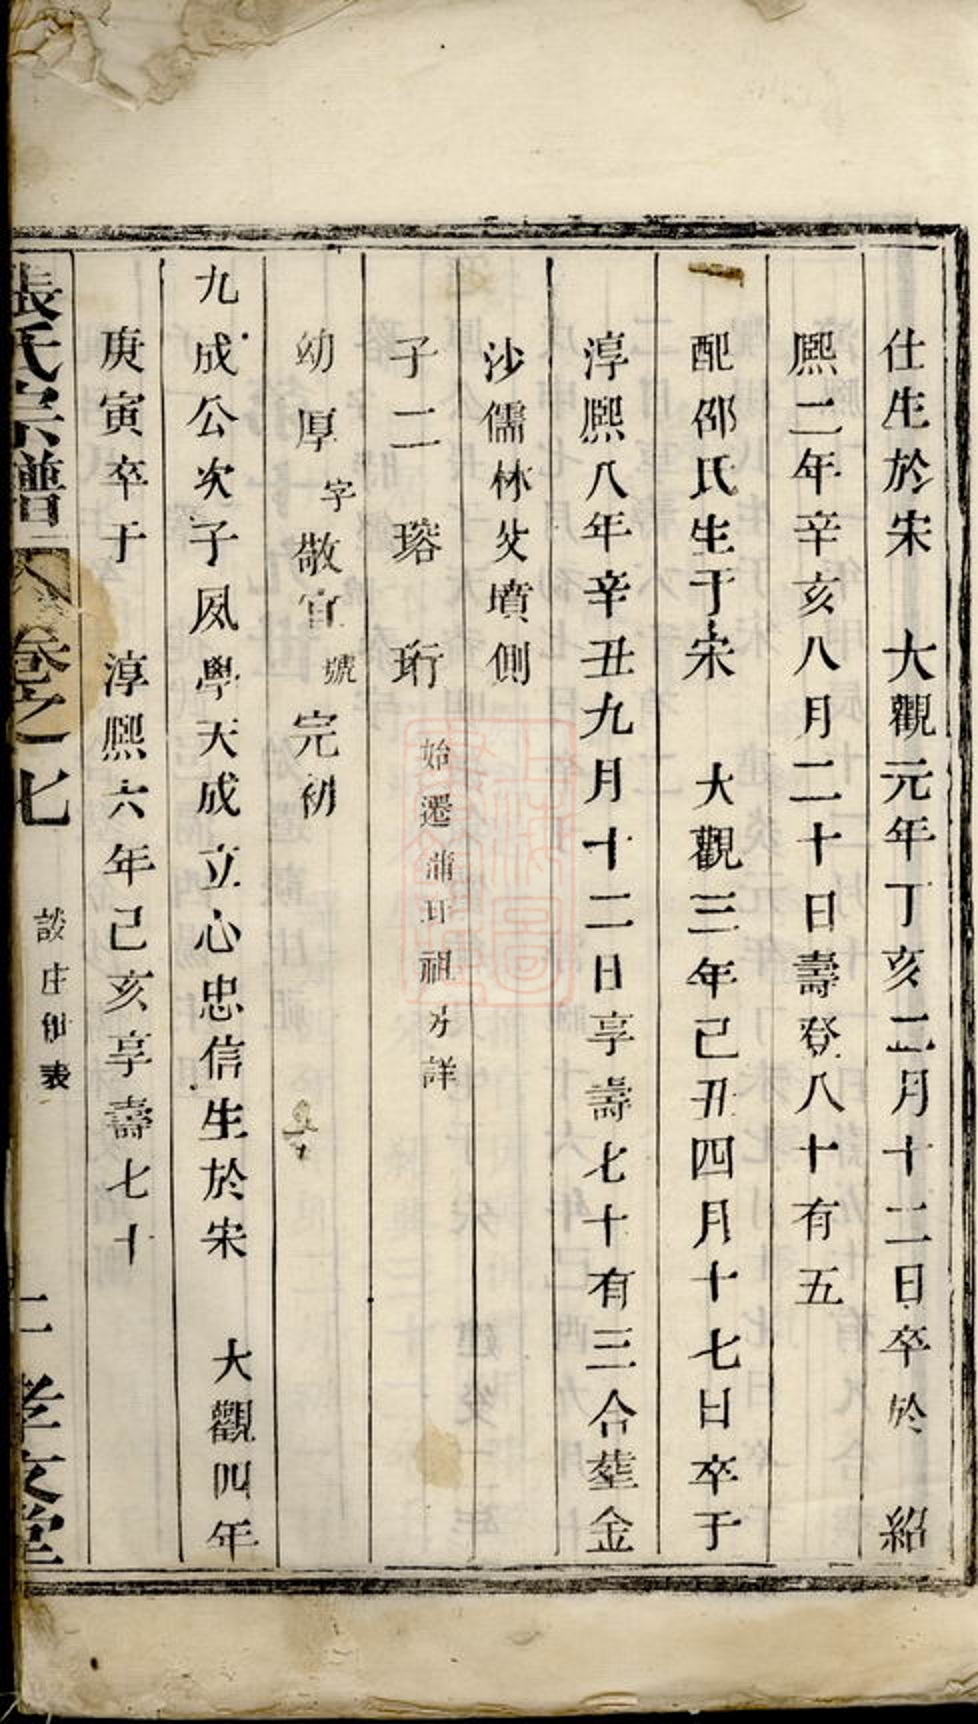 仕生於宋　大觀元年丁亥二月十二日卒於　紹
熙二年辛亥八月二十日壽登八十有五
配邵氏生于宋　大觀三年己丑四月十七日卒于
淳熙八年辛丑九月十二日享壽七十有三合塟金
沙儒林父墳側
子二　瑢　珩 始遷蒲圩祖另詳
幼厚 字敬宜 號完初
九成公次子夙學天成立心忠信生於宋　大觀四年
庚寅卒于　淳熙六年己亥享壽七十
張氏宗譜　卷之七　談庄世表　二　孝友堂